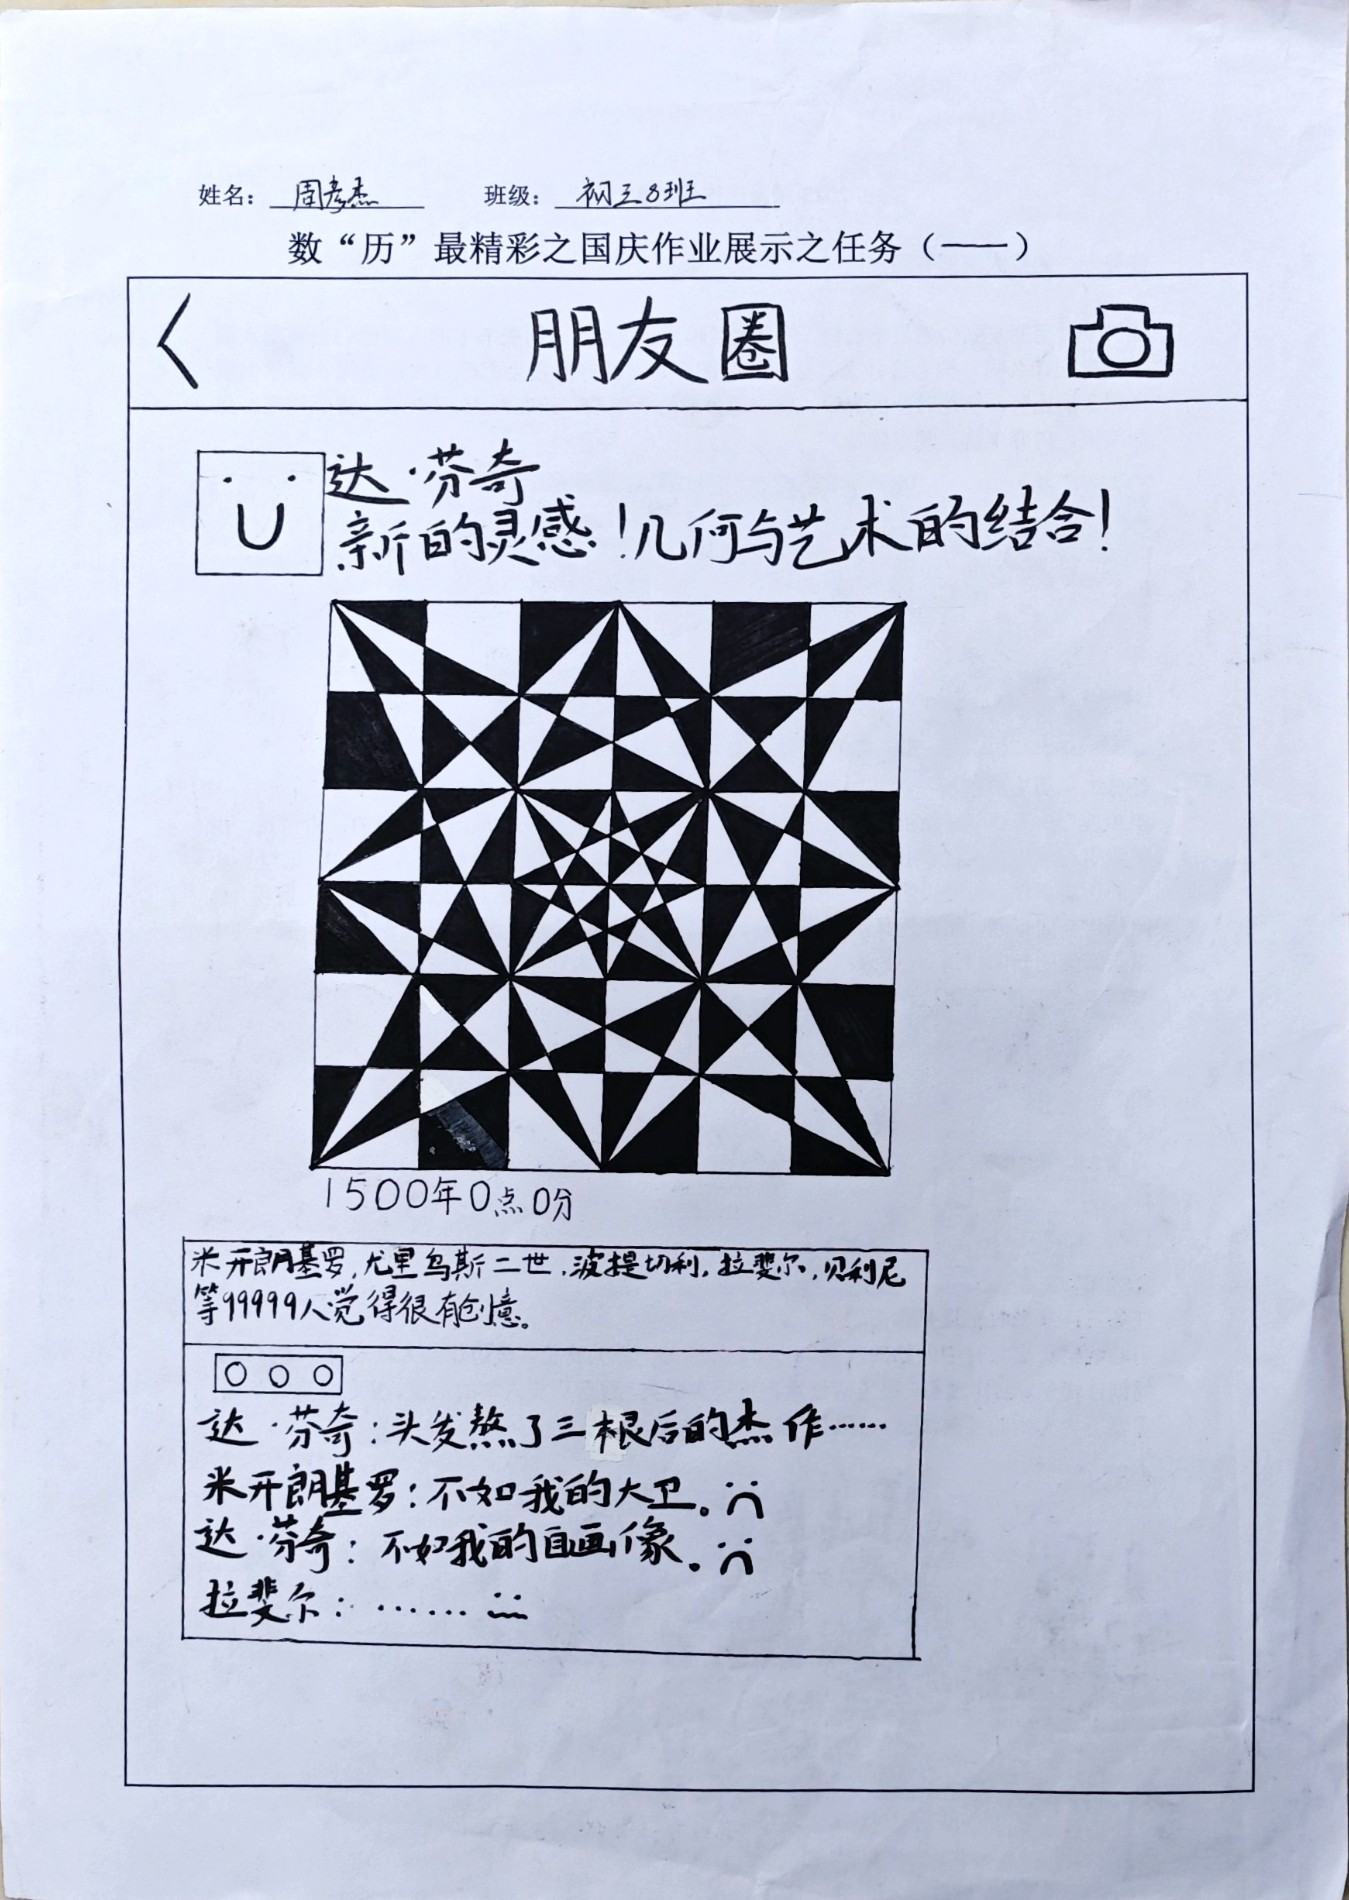 姓名：周彦杰 班级：初三8班
数“历”最精彩之国庆作业展示之任务（一）
朋友圈
达·芬奇
新的灵感！几何与艺术的结合！
1500年0点0分
米开朗基罗，尤里乌斯二世，波提切利，拉斐尔，贝利尼
等99999人觉得很有创意。
达·芬奇：头发熬了三根后的杰作……
米开朗基罗：不如我的大卫。
达·芬奇：不如我的自画像。
拉斐尔：……